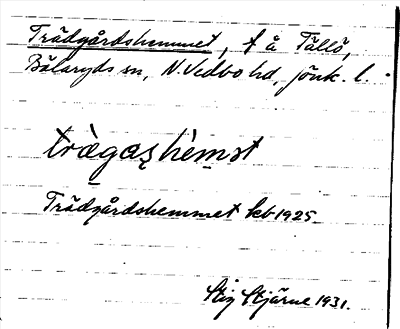 Trädgårdshemmet, f å Tällö,
Bälaryds sn, N. Vedbo hd, Jönk. l.
trägas̨hèmət
Trädgårdshemmet kb 1925
Stig Stjärne 1931.